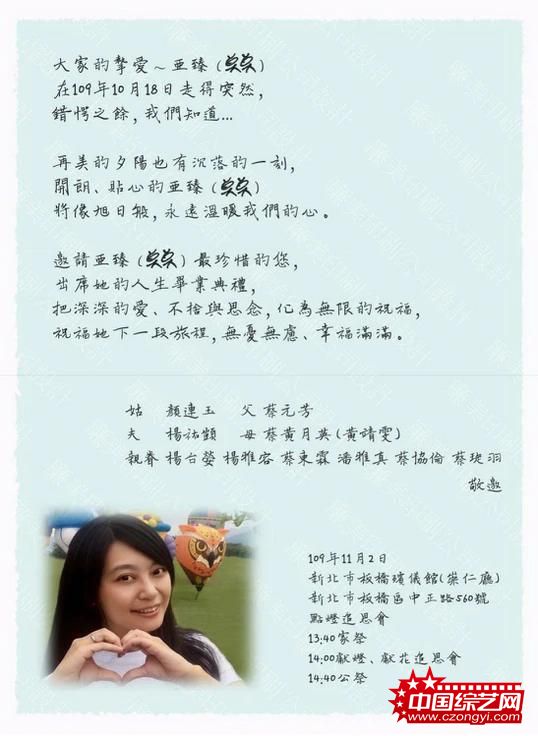 大家的摯愛～亚臻（臭臭）
在109年10月18日走得突然，
錯愕之餘，我們知道...
再美的夕陽也有沉落的一刻，
開朗、貼心的亚臻（臭臭）
將像旭日般，永遠溫暖我們的心。
邀請亚臻（臭臭）最珍惜的您，
出席她的人生畢業典禮，
把深深的愛、不捨與思念，化為無限的祝福，
祝福她下一段旅程，無憂無慮、幸福滿滿。
姑 顏連玉 父 蔡元芳
夫 楊祐顗 母 蔡黃月英（黃靖雯）
親眷 楊台瑩 楊雅容 蔡東霖 潘雅真 蔡協倫 蔡琰羽
敬邀
109年11月2日
新北市板橋殯儀館（崇仁廳）
新北市板橋區中正路560號
點燈追思會
13:40家祭
14:00獻燈、獻花追思會
14:40公祭
中国综艺网
www.czongyi.com